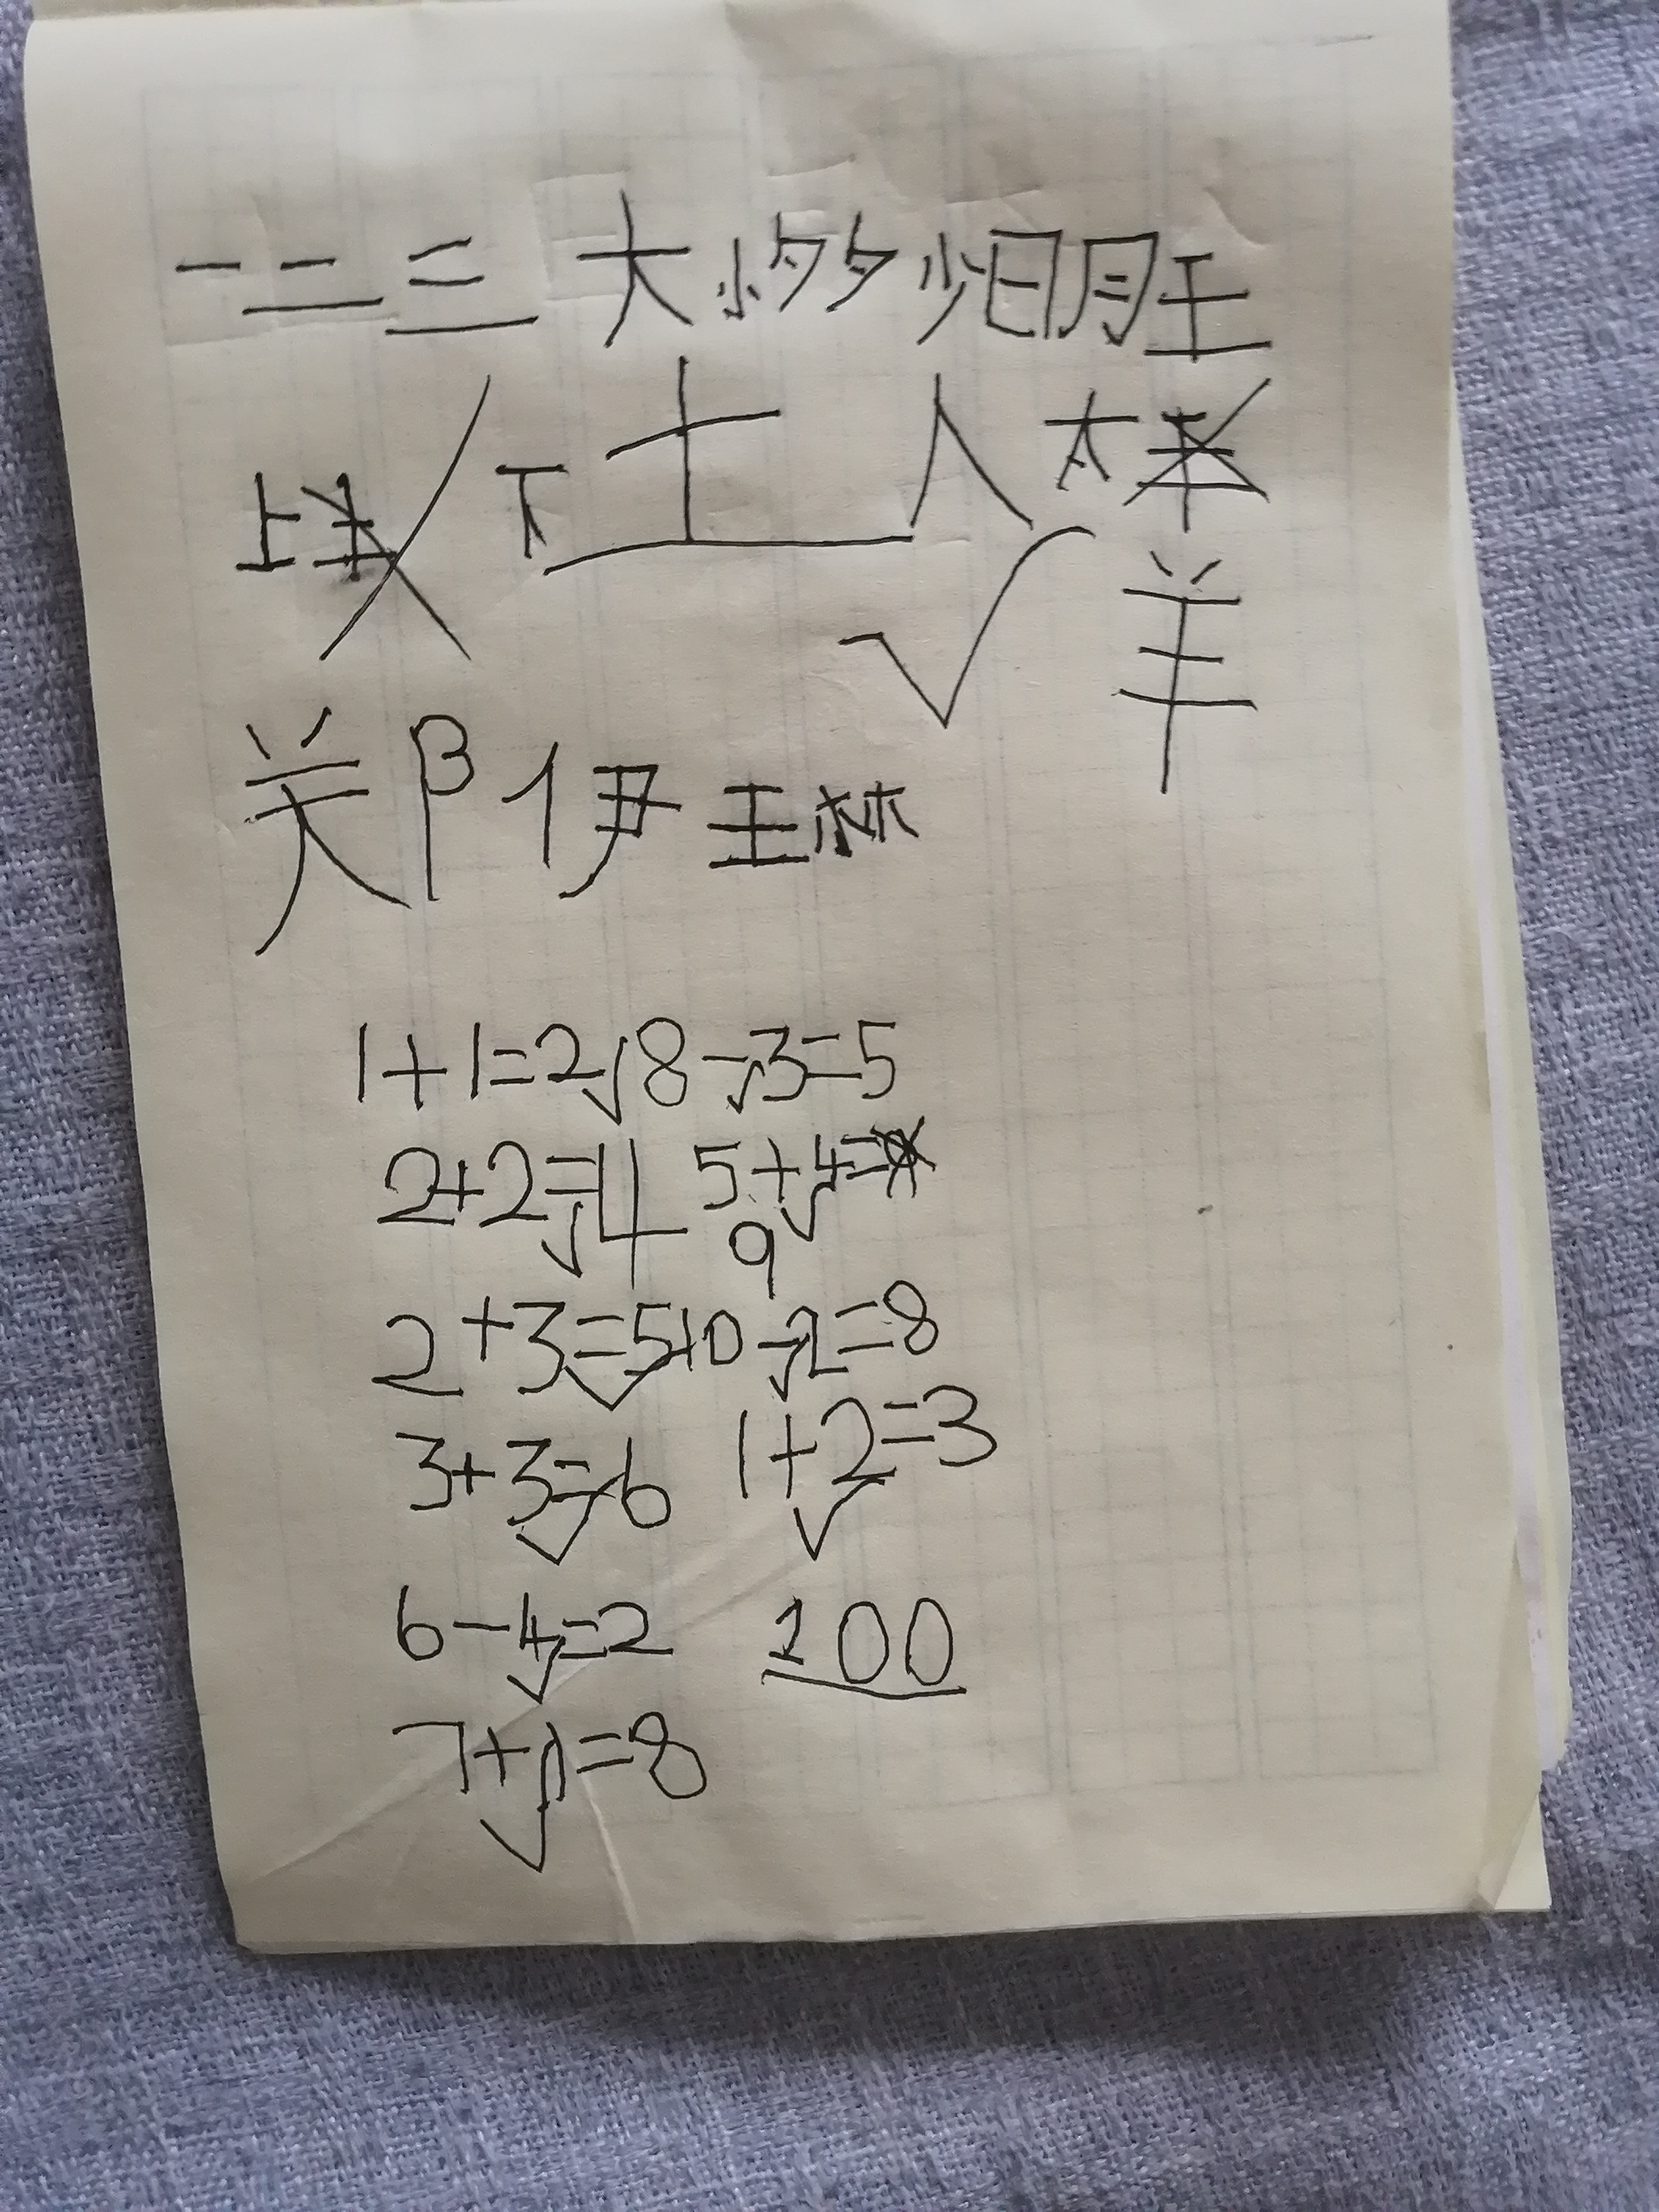 一二三大小多少日月王
上下土人太
√羊
郑伊王林
1+1=2√ 8-3=5√
2+2=4√ 5+4=9√
2+3=5√ 10-2=8√
3+3=6√ 1+2=3√
6-4=2√ 100
7+1=8√